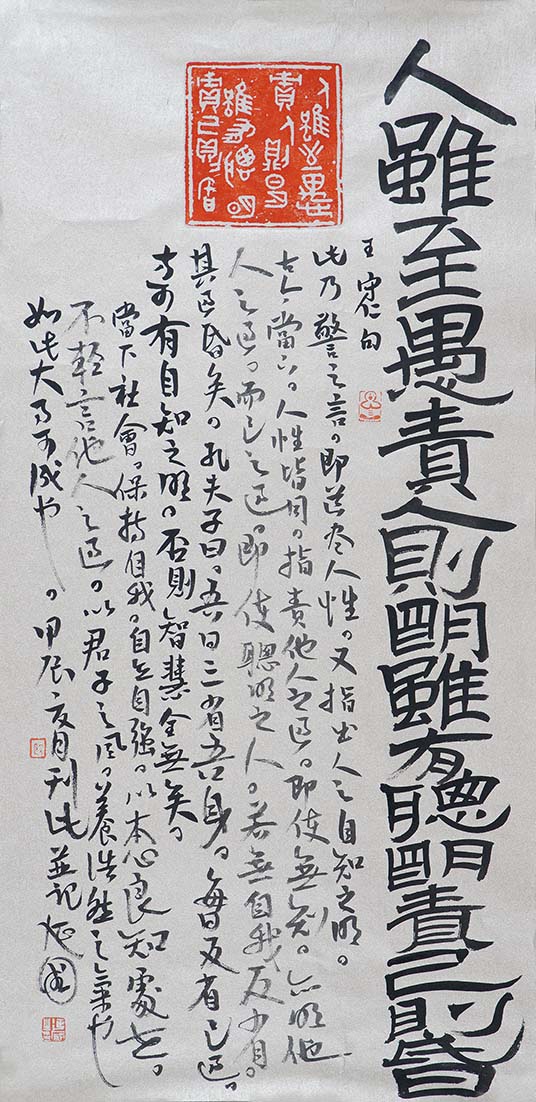 人雖至愚責人則明雖有聰明責己則昏
人雖至愚
責人則明
雖有聰明
責己則昏
王守仁句
此乃警之言。即道尽人性。又指出人之自知之明。
古今當。人性皆同。指責他人之過。即使無知。亦明他
人之過。而己之過。即使聰明之人。若無自我反省。
其過昏矣。孔夫子曰。吾日三省吾身。每日反省己過。
方可有自知之明。否則智慧全無矣。
當下社會。保持自我。自立自強。以本心良知處世。
不輕言他人之過。以君子之風。養浩然之氣也
如此大事可成也。甲辰夏月刊此並記